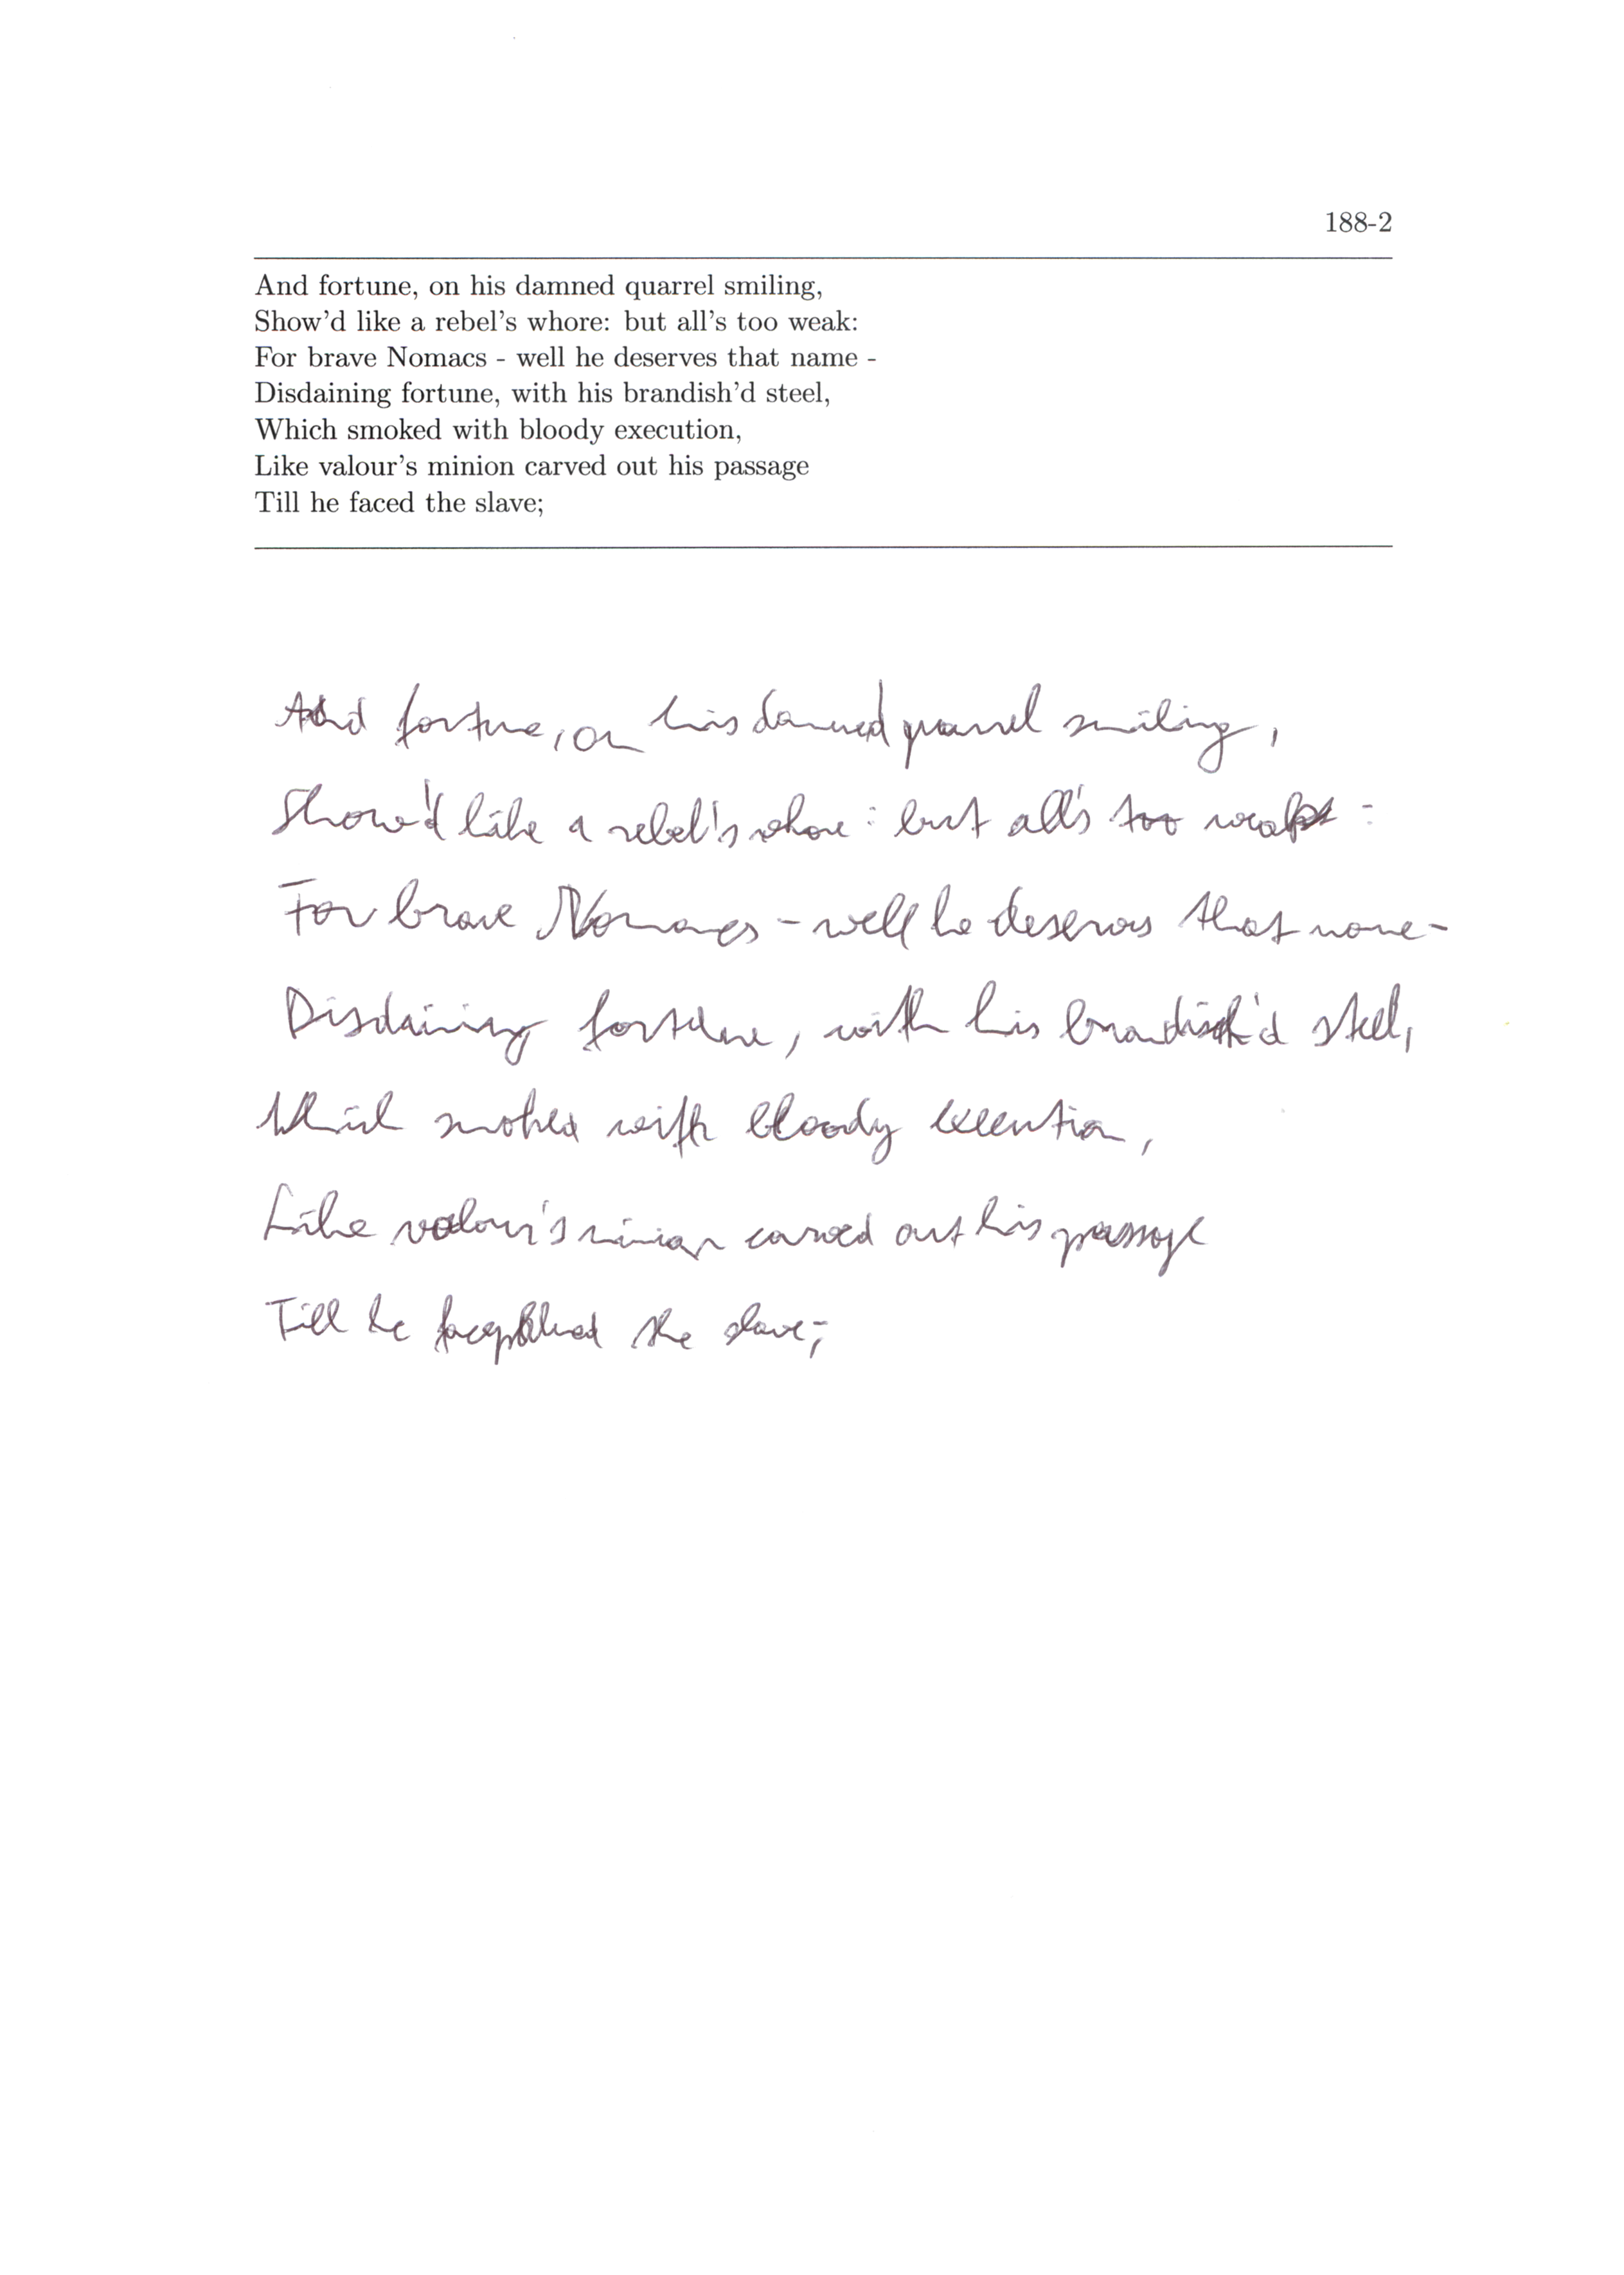 188-2
And fortune, on his damned quarrel smiling,
Show'd like a rebel's whore: but all's too weak:
For brave Nomacs - well he deserves that name -
Disdaining fortune, with his brandish'd steel,
Which smoked with bloody execution,
Like valour's minion carved out his passage
Till he faced the slave;
And fortune, on his damned quarrel smiling,
Show'd like a rebel's whore: but all's too weak:
For brave Nomacs - well he deserves that name -
Disdaining fortune, with his brandish'd steel,
Which smoked with bloody execution,
Like valour's minion carved out his passage
Till he the slave;